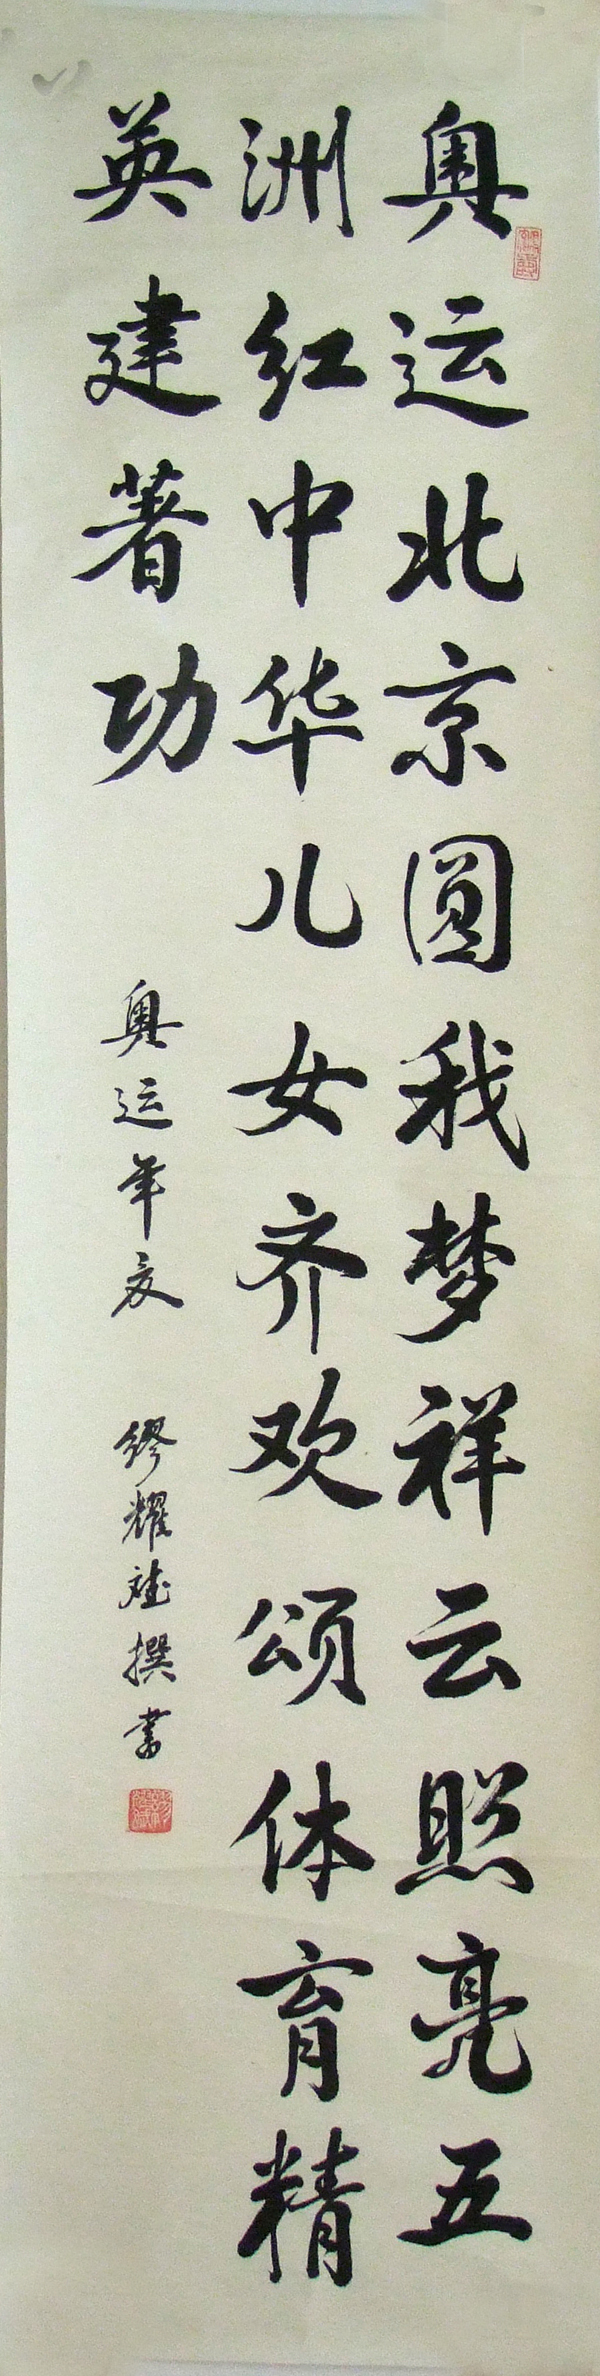 奥运北京圆我梦祥云照亮五
洲红中华儿女齐欢颂体育精
英建著功
奥运年夏
缪耀斌撰书